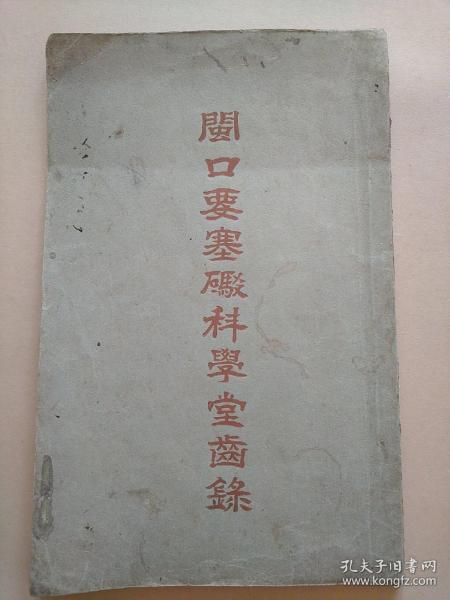 閩口要塞礮科學堂齒錄
孔夫子旧书网
www.kongfz.com